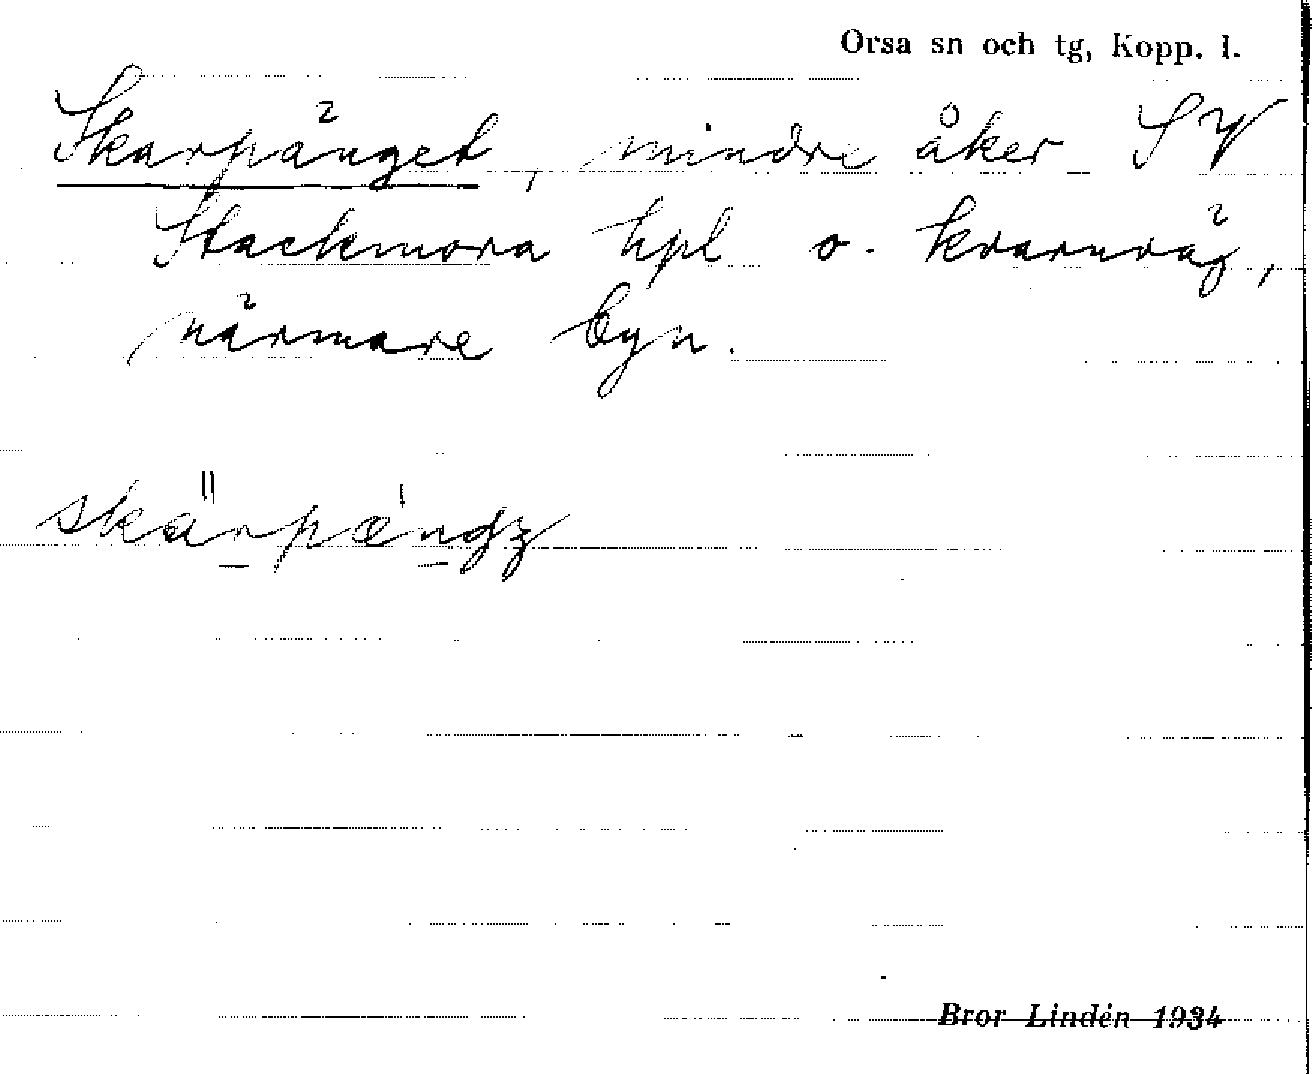 Orsa sn och tg, Kopp. l.
Skarpänget, mindre åker SV
Stackmora hpl o. kvarnväg,
närmare byn.
skärpængz
Bror Lindén 1934